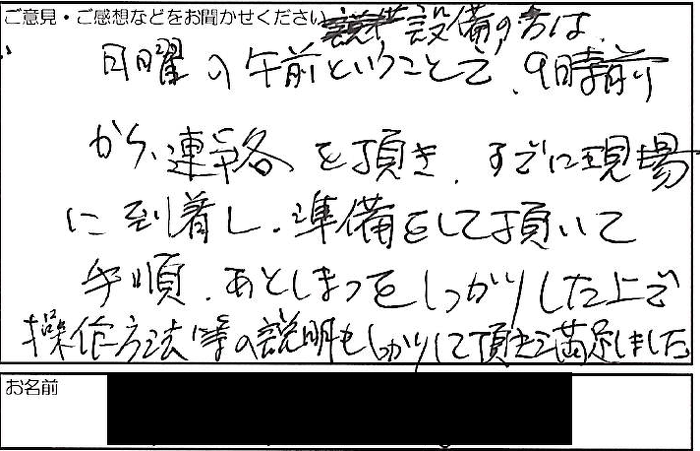 ご意見・ご感想などをお聞かせください
設備の方は、
日曜の午前ということで、9時前
から、連絡を頂き、すでに現場
に到着し、準備をして頂いて
手順、あとしまつをしっかりした上で
操作方法等の説明もしっかりして頂き満足しました
お名前